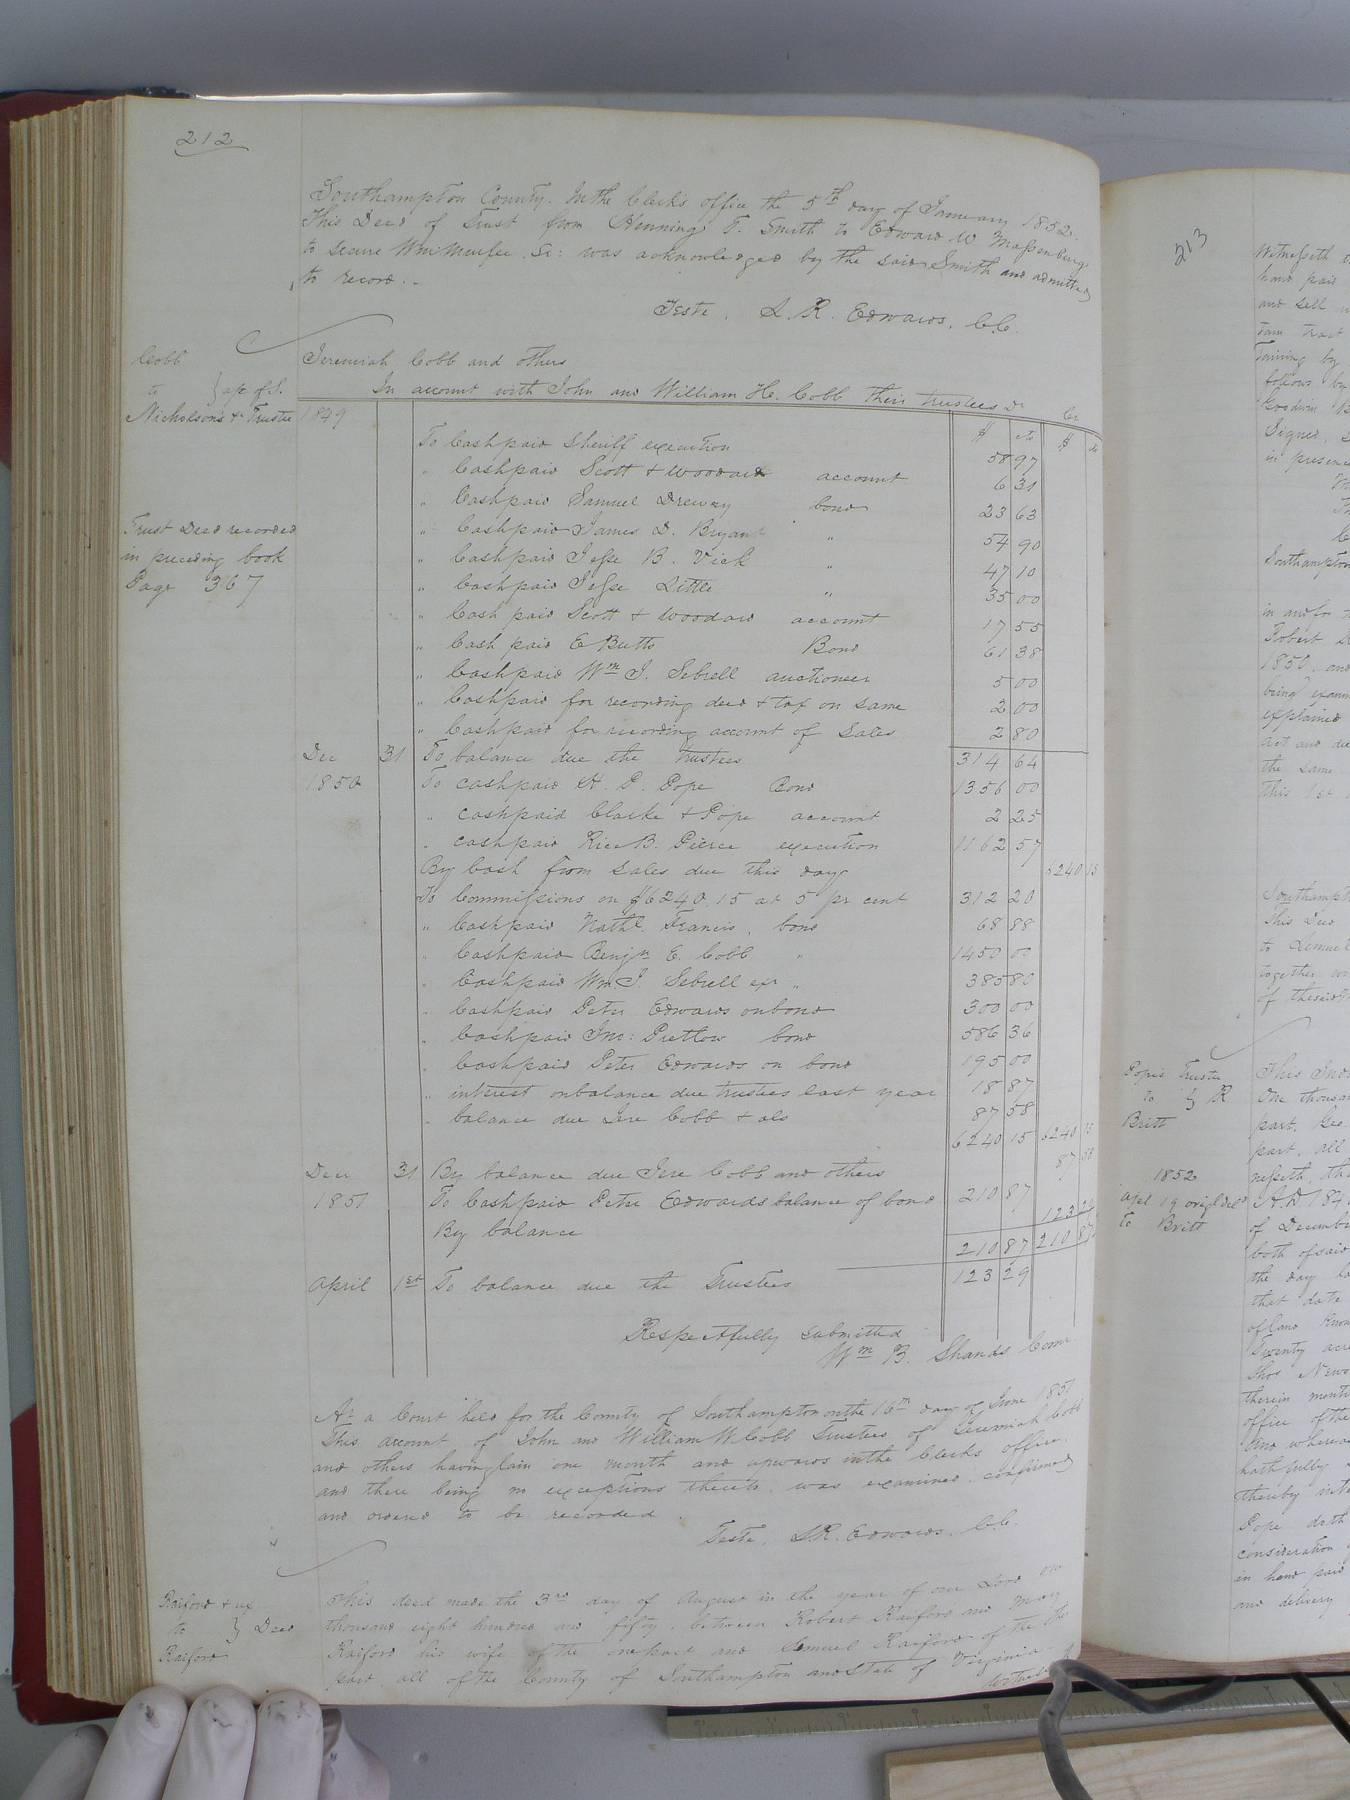 212
Southampton County. In the Clerk's office the 5th day of January 1852.
This Deed of Trust from Henning T. Smith to Edward W Massenburg
to secure Wm Murfee Sr: was acknowledged by the said Smith and admitted
to record. -
Teste, L. R. Edwards, C.C.
Cobb
to } a/c of S.
Nicholson's + Trustee
Jeremiah Cobb and others
In account with John and William H. Cobb their trustees Dr Cr
1849 $ cts $ cts
To Cash paid Sheriff execution 58 97
" Cash paid Scott + Woodard account 6 31
" Cash paid Samuel Drewry bond 23 63
Trust Deed recorded
in preceding book
Page 367
" Cash paid James D. Bryant " 54 90
" Cash paid Jesse B. Vick " 47 10
" Cash paid Jesse Little " 35 00
" Cash paid Scott + Woodard account 17 55
" Cash paid E Butts Bond 61 38
" Cash paid Wm J. Sebrell auctioneer 5 00
" Cash paid for recording deed + tax on same 2 00
" Cash paid for recording account of sales 2 80
Dec 31 To balance due the trustees 314 64
1850 To cash paid H. P. Pope Bond 1356 00
" cash paid Clarke + Pope account 2 25
" cash paid Rice B. Pierce execution 1162 57
By Cash from sales due this day 6240 15
To Commissions on $6240.15 at 5 pr cent 312 20
" Cash paid Nathl. Francis, bond 68 88
" Cash paid Benjn E. Cobb " 1450 00
" Cash paid Wm J. Sebrell exr " 385 80
" Cash paid Peter Edwards on bond 300 00
" Cash paid Jno: Pretlow bond 586 36
" Cash paid Peter Edwards on bond 195 00
" interest on balance due trustees last year 18 87
" balance due Jere Cobb + als 87 58
6240 15 6240 15
Dec 31 By balance due Jere Cobb and others 87 58
1851 To Cash paid Peter Edwards balance of bond 210 87
By balance 123 29
210 87 210 87
April 1st To balance due the Trustees 123 29
Respectfully submitted
Wm B. Shands Comr
At a Court held for the County of Southampton on the 16th day of June 1851
This account of John and William W Cobb Trustees of Jeremiah Cobb
and others having lain one month and upwards in the Clerks office,
and there being no exceptions thereto, was examined, confirmed
and ordered to be recorded.
Teste, L R. Edwards, C.C.
Raiford + ux
to } Deed
Raiford
This deed made the 3rd day of August in the year of our Lord one
thousand eight hundred and fifty, between Robert Raiford and Mary
Raiford his wife of the one part and Lemuel Raiford of the other
part, all of the County of Southampton and State of Virginia
213
Witnesseth
hand paid
and sell
follows by
Goodwin B
Signed, S
in presence
Southampton
in and for
Robert
1850, and
being exam
explained
act and de
the same
this 1st
Southampt
This Deed
to Lemuel
together
Pope's Trustee
to } R
Britt
This Inde
One thousa
part, Geo
part, all
1852
Apl 19 origl deld
to Britt
nesseth, tha
A.D. 184
of Decembe
both of said
the day la
that date
of land know
Twenty acre
Thos Newe
therein menti
office of the
And wherea
hath fully
thereby
Pope doth
consideration
in hand paid
and delivery